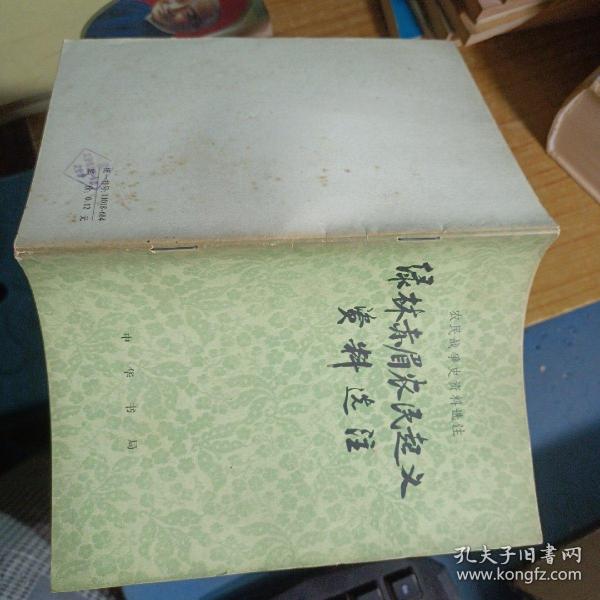 农民战争史资料选注
绿林赤眉农民起义
资料选注
中华书局
统一书号:11018·684
定 价: 0.12 元
孔夫子旧书网
www.kongfz.com